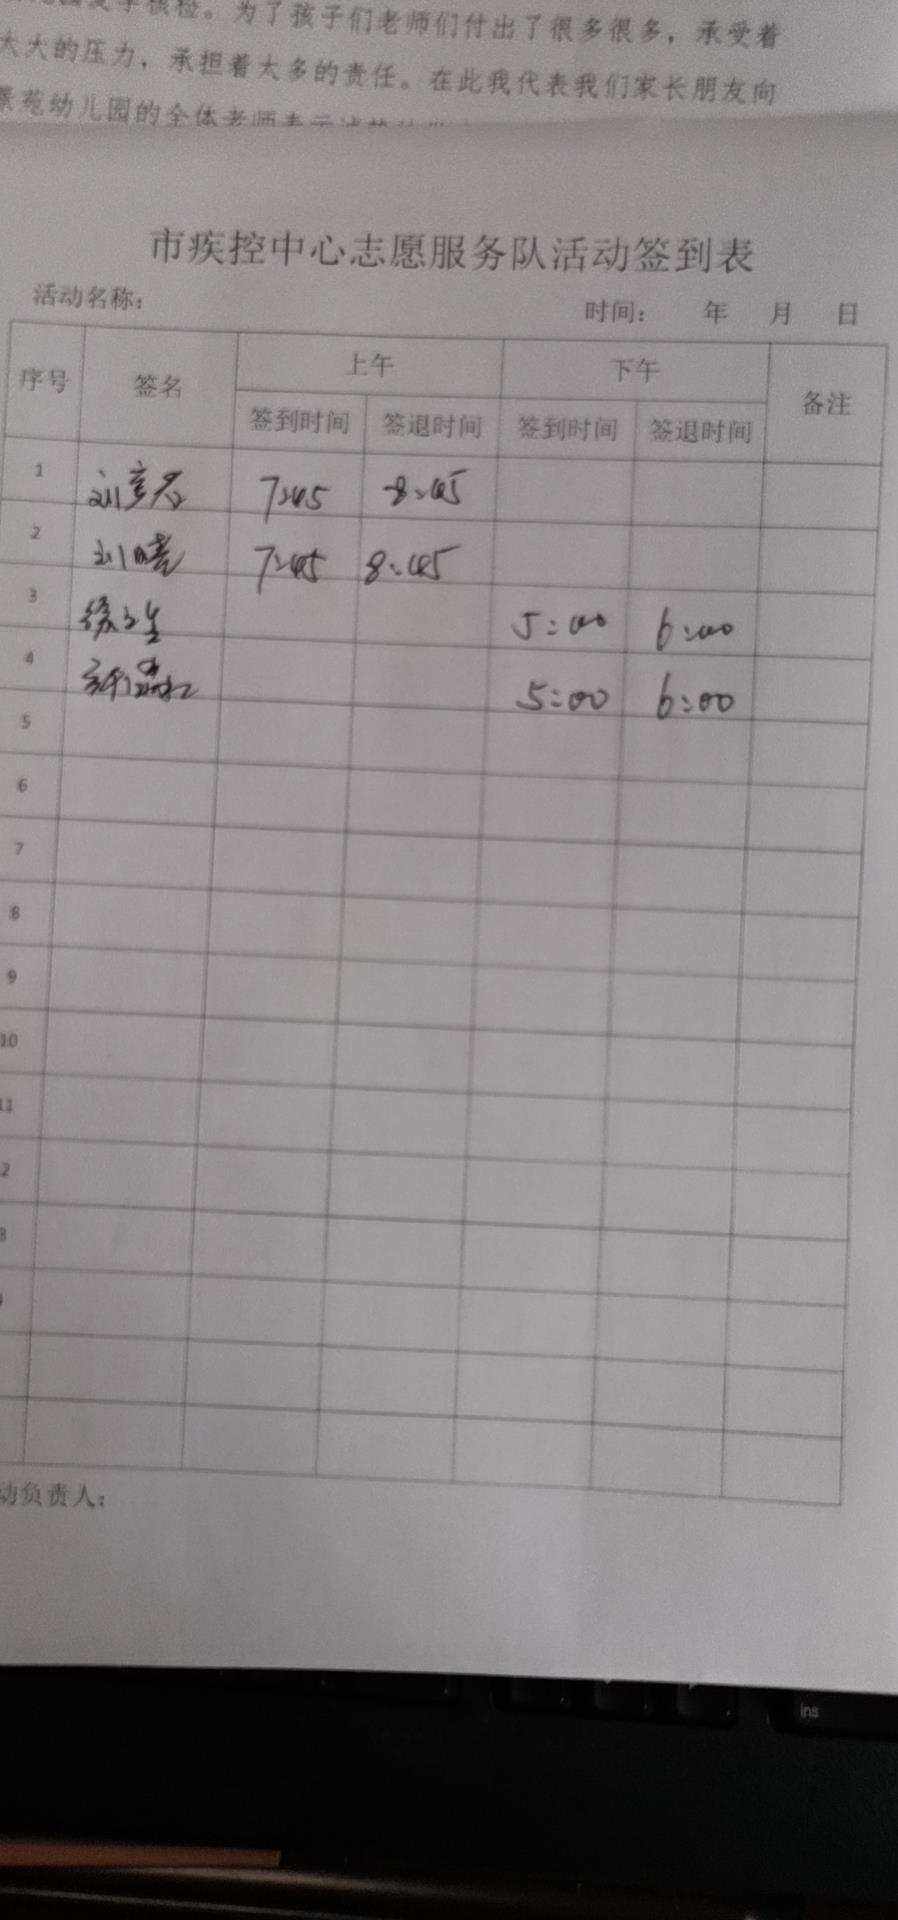 为了孩子们老师们付出了很多很多，承受着
太大的压力，承担着太多的责任。在此我代表我们家长朋友向
景苑幼儿园的全体老师表示
市疾控中心志愿服务队活动签到表
活动名称： 时间： 年 月 日
序号 签名 上午 下午 备注
签到时间 签退时间 签到时间 签退时间
1 7:45 8:45
2 刘晓 7:45 8:45
3 5:00 6:00
4 5:00 6:00
5
6
7
8
9
10
11
2
3
动负责人：
ins